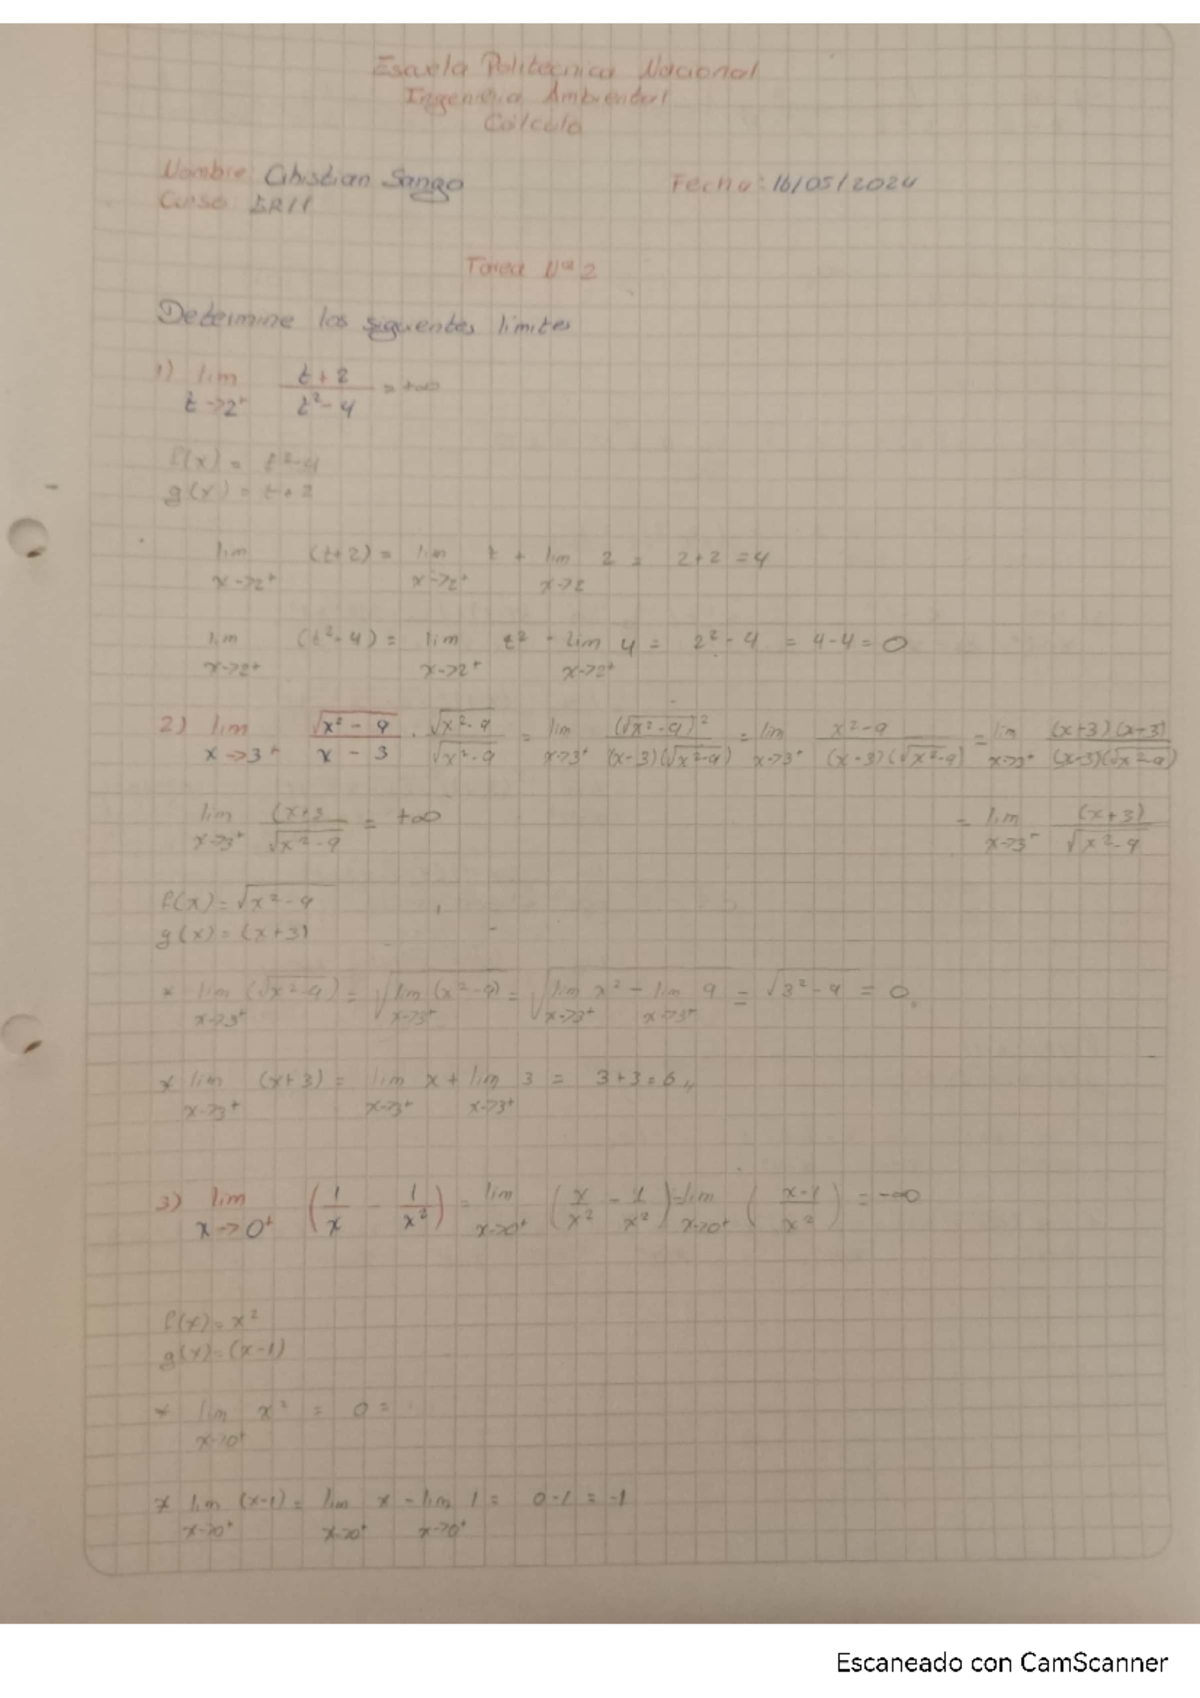 Escuela Politecnica Nacional
Ingenieria Ambiental
Cálculo
Nombre: Christian Sango Fecha: 16/05/2024
Curso
Tarea Nº 2
Determine los siguientes limites
1) lim t→2⁺ (t+2)/(t²-4) = +∞
f(x) = t²-4
g(x) = t+2
lim x→2⁺ (t+2) = lim x→2⁺ t + lim x→2 2 = 2+2 = 4
lim x→2⁺ (t²-4) = lim x→2⁺ t² - lim x→2⁺ 4 = 2²-4 = 4-4 = 0
2) lim x→3⁺ √(x²-9)/(x-3) · √(x²-9)/√(x²-9) = lim x→3⁺ (√(x²-9))²/((x-3)(√(x²-9))) = lim x→3⁺ (x²-9)/((x-3)(√(x²-9))) = lim x→3⁺ (x+3)(x-3)/((x-3)(√(x²-9)))
lim x→3⁺ (x+3/√(x²-9) = +∞ = lim x→3⁻ (x+3)/√(x²-9)
f(x) = √(x²-9)
g(x) = (x+3)
* lim x→3⁺ (√(x²-9)) = √(lim x→3⁺ (x²-9)) = √(lim x→3⁺ x² - lim x→3⁺ 9) = √(3²-9) = 0
* lim x→3⁺ (x+3) = lim x→3⁺ x + lim x→3⁺ 3 = 3+3=6
3) lim x→0⁺ (1/x - 1/x²) = lim x→0⁺ (x/x² - 1/x²) = lim x→0⁺ ((x-1)/x²) = -∞
f(x) = x²
g(x) = (x-1)
* lim x→0⁺ x² = 0 =
* lim x→0⁺ (x-1) = lim x→0⁺ x - lim x→0⁺ 1 = 0-1 = -1
Escaneado con CamScanner